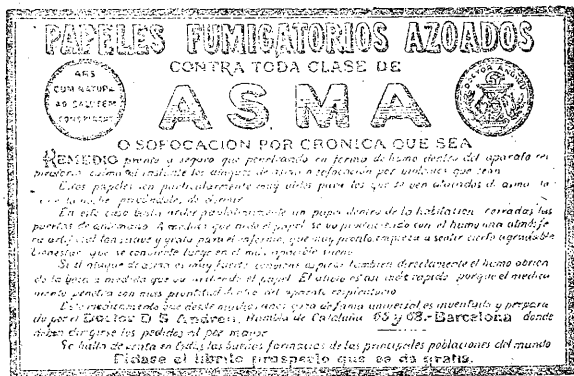 PAPELES FUMIGATORIOS AZOADOS
CONTRA TODA CLASE DE
ARS
CUM NATURA
AD SALUTEM
CONSPIRANS
DOCTOR ANDREU
ASMA
O SOFOCACION POR CRONICA QUE SEA
REMEDIO pronto y seguro que penetrando en forma de humo dentro del aparato res
piratorio calma al instante los ataques de asma o sofocación por violentos que sean
Estos papeles son particularmente muy útiles para los que se ven atacados de asma
la noche privándole de dormir
En este caso basta arder paulatinamente un papel dentro de la habitación cerradas las
puertas de antemano. A medida que arde el papel se va produciendo con el humo una atmósfe
ra artificial tan suave y grata para el enfermo, que muy pronto empieza a sentir cierto agradable
bienestar que se convierte luego en el más apacible sueño
Si el ataque de asma es muy fuerte conviene aspirar también directamente el humo abrien
do la boca a medida que va ardiendo el papel. El alivio es así más rápido porque el medica
mento penetra con más prontitud dentro del aparato respiratorio
Este medicamento que desde muchos años goza de fama universal es inventado y prepara
do por el Doctor D S Andreu, Rambla de Cataluña 66 y 68.-Barcelona donde
deben dirigirse los pedidos al por mayor
Se halla de venta en todas las buenas farmacias de las principales poblaciones del mundo
Pídase el librito prospecto que se da gratis.